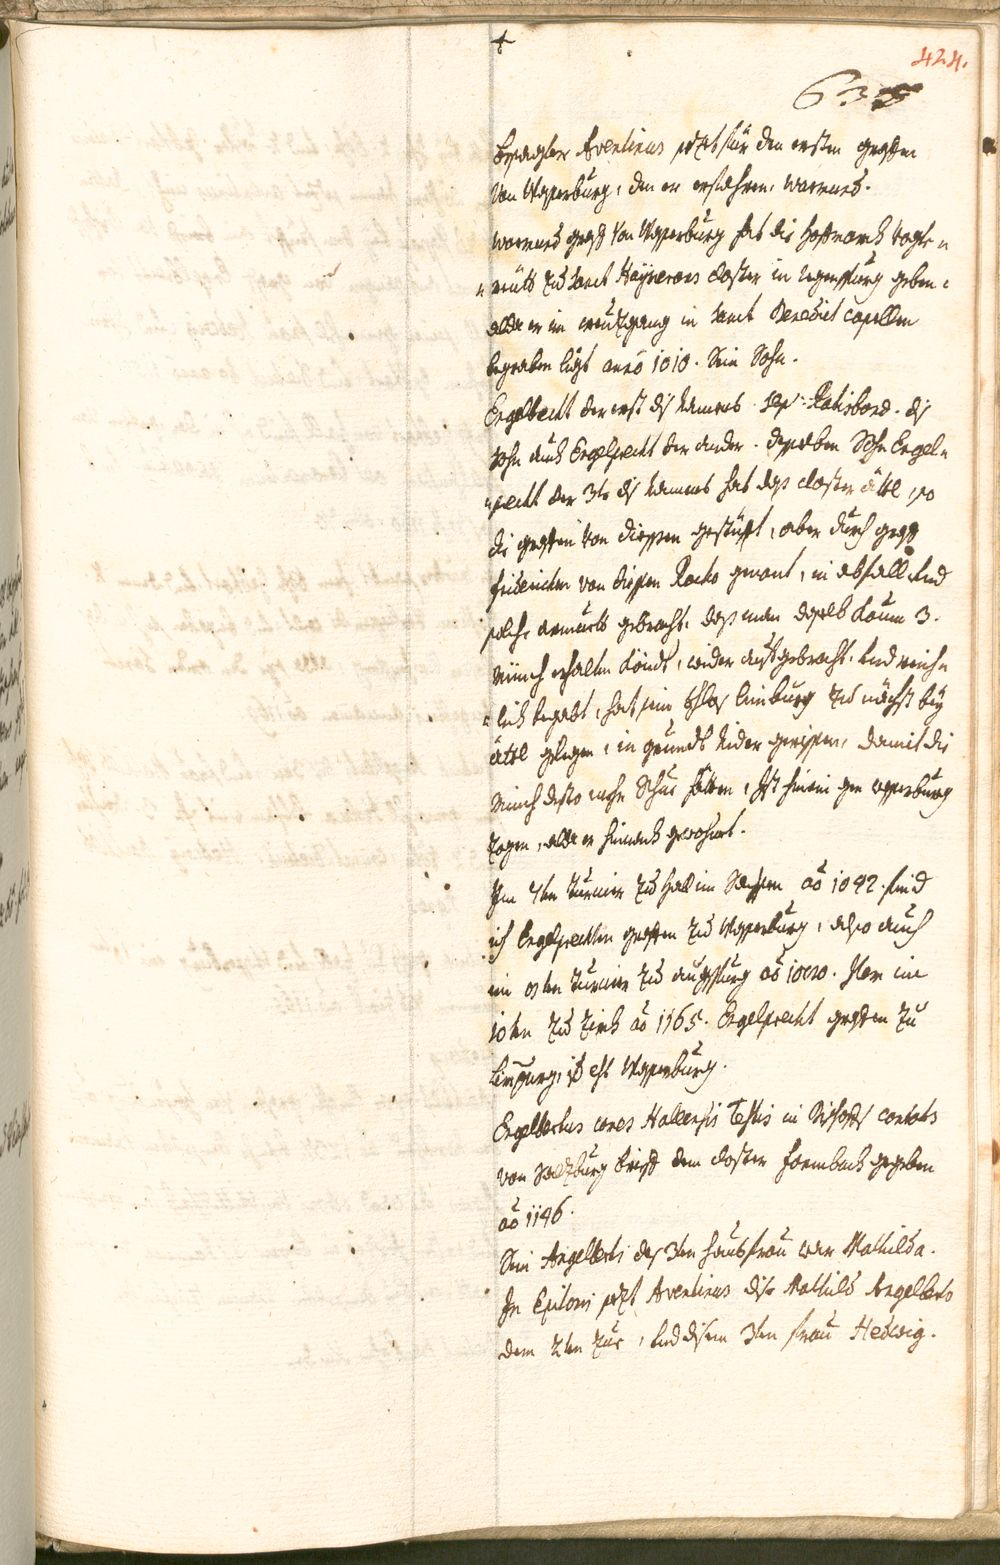 424.
635
Besagter Aventinus sezt für den ersten graffen
Von Wasserburg, den er erfahren, warmund.
warmund graff Von Wasserburg hat die Hoffmarch Vogta=
=reuth zu Sanct Haymerans closter in regenspurg geben,
alda er im creutzgang in Sanct Benedict capellen
begraben ligt anno 1010. Sein Sohn.
Engelbrecht der erst diß Namens sep: Ratisbonae. diß
Sohn auch Engelprecht der ander. desselben Sohn Engel=
=precht der 3te diß Namens hat daß closter ättl, so
die graffen von diessen gestüfft, aber durch graff
friderichen von diessen Rocho genant, in abfall und
solche armueth gebracht, daß man daselbs kaum 3.
Münch erhalten köndt, wider auffgebracht. Und reich=
=lich begabt, hat sein Schlos limburg zu nächst bey
ättl gelegen, in grundt nider gerissen, damit die
Münch desto mehr Schuz hätten, Ist hinein gen wasserburg
zogen, alda er hinnach gewohnet.
Im 4ten Turnier zu Hall im Sachsen ao 1042. find
ich Engelprechten graffen zu Wasserburg, also auch
im 9ten Turnier zu augspurg ao 1080. Item im
10ten zu Zürch ao 1165. Engelprecht graffen zu
limpurg, id est Wasserburg.
Engelbertus comes Hallensis Testis in Bischoffs conrads
von Salzburg brieff dem closter formbach gegeben
ao 1146.
Sein Angelberti des 3ten hausfrau war Mathilda.
In Epitom sezt Aventinus dise Mathild Angelberto
dem 2ten zue, und disem 3ten frau Hedwig.